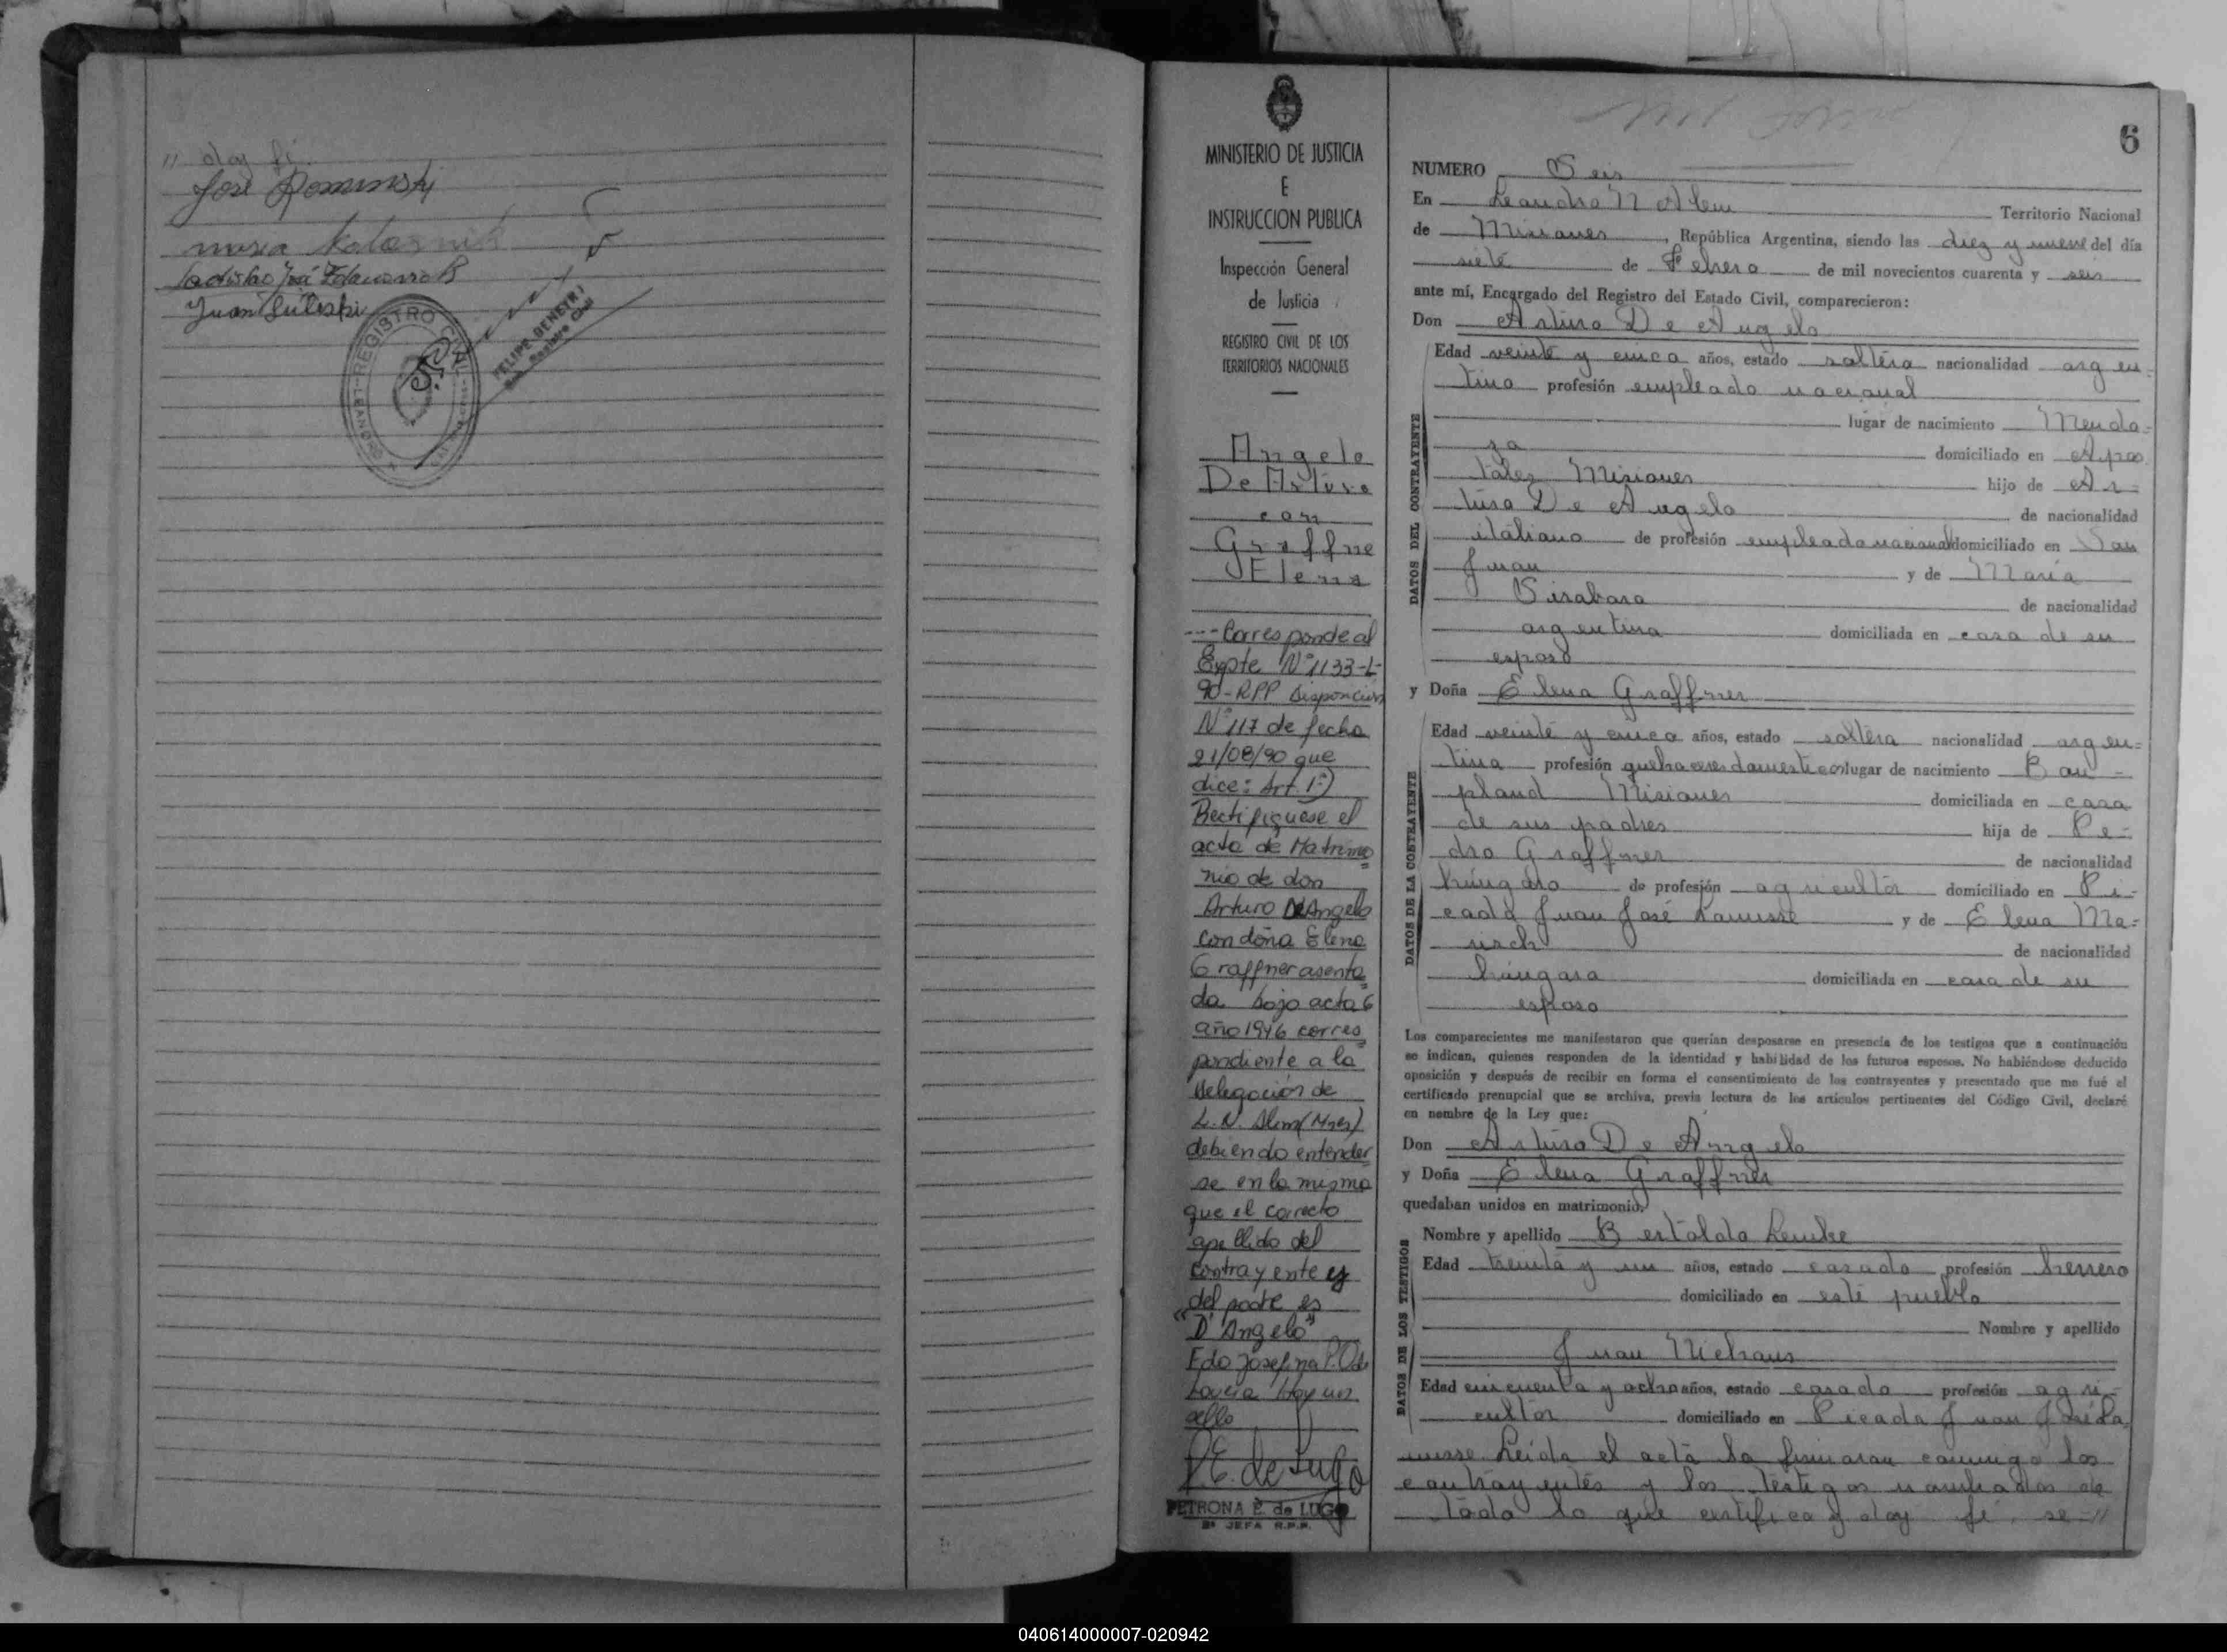 " doy fé.
José Dominski
maria
Juan
REGISTRO CIVIL
LEANDRO
FELIPE BENETTI
6
MINISTERIO DE JUSTICIA
E
INSTRUCCION PUBLICA
Inspección General
de Justicia
REGISTRO CIVIL DE LOS
TERRITORIOS NACIONALES
Angelo
De Arturo
con
Graffne
Elena
---Corresponde al
Expte Nº 1133-L-
90-RPP Disposición
Nº 117 de fecha
21/08/90 que
dice: Art. 1º)
Rectifíquese el
acta de Matrimo
nio de don
Arturo De Angelo
con doña Elena
Graffner asenta
da bajo acta 6
año 1946 corres
pondiente a la
Delegación de
L.N. Alem (Mnes)
debiendo entender
se en la misma
que el correcto
apellido del
contrayente y
del padre es
"D'Angelo"
Fdo Josefina P. O de
Hay un
sello
P.E. de Lugo
PETRONA E. de LUGO
JEFA R.P.P.
NUMERO Seis
En Leandro N Alem Territorio Nacional
de Misiones, República Argentina, siendo las diez y nueve del día
siete de Febrero de mil novecientos cuarenta y seis
ante mí, Encargado del Registro del Estado Civil, comparecieron:
Don Arturo De Angelo
DATOS DEL CONTRAYENTE
Edad veinte y cinco años, estado soltero nacionalidad argen-
tina profesión empleado nacional
lugar de nacimiento Mendo-
za domiciliado en Apos
toles Misiones hijo de Ar-
turo De Angelo de nacionalidad
italiano de profesión empleado nacional domiciliado en San
Juan y de María
de nacionalidad
argentina domiciliada en casa de su
esposo
y Doña Elena Graffner
DATOS DE LA CONTRAYENTE
Edad veinte y cinco años, estado soltera nacionalidad argen-
tina profesión quehaceres domesticos lugar de nacimiento Bon-
pland Misiones domiciliada en casa
de sus padres hija de Pe-
dro Graffner de nacionalidad
húngaro de profesión agricultor domiciliado en Pi-
cada Juan José Lanusse y de Elena Ma-
de nacionalidad
húngara domiciliada en casa de su
esposo
Los comparecientes me manifestaron que querían desposarse en presencia de los testigos que a continuación
se indican, quienes responden de la identidad y habilidad de los futuros esposos. No habiéndose deducido
oposición y después de recibir en forma el consentimiento de los contrayentes y presentado que me fué el
certificado prenupcial que se archiva, previa lectura de los artículos pertinentes del Código Civil, declaré
en nombre de la Ley que:
Don Arturo De Angelo
y Doña Elena Graffner
quedaban unidos en matrimonio.
DATOS DE LOS TESTIGOS
Nombre y apellido Bertoldo Lemke
Edad treinta y un años, estado casado profesión herrero
domiciliado en este pueblo
Nombre y apellido
Juan Niehaus
Edad cincuenta y ocho años, estado casado profesión agri-
cultor domiciliado en Picada Juan José La-
nusse. Leída el acta la firmaran conmigo los
contrayentes y los testigos nombrados de
todo lo que certifico y doy fé. se-"
040614000007-020942